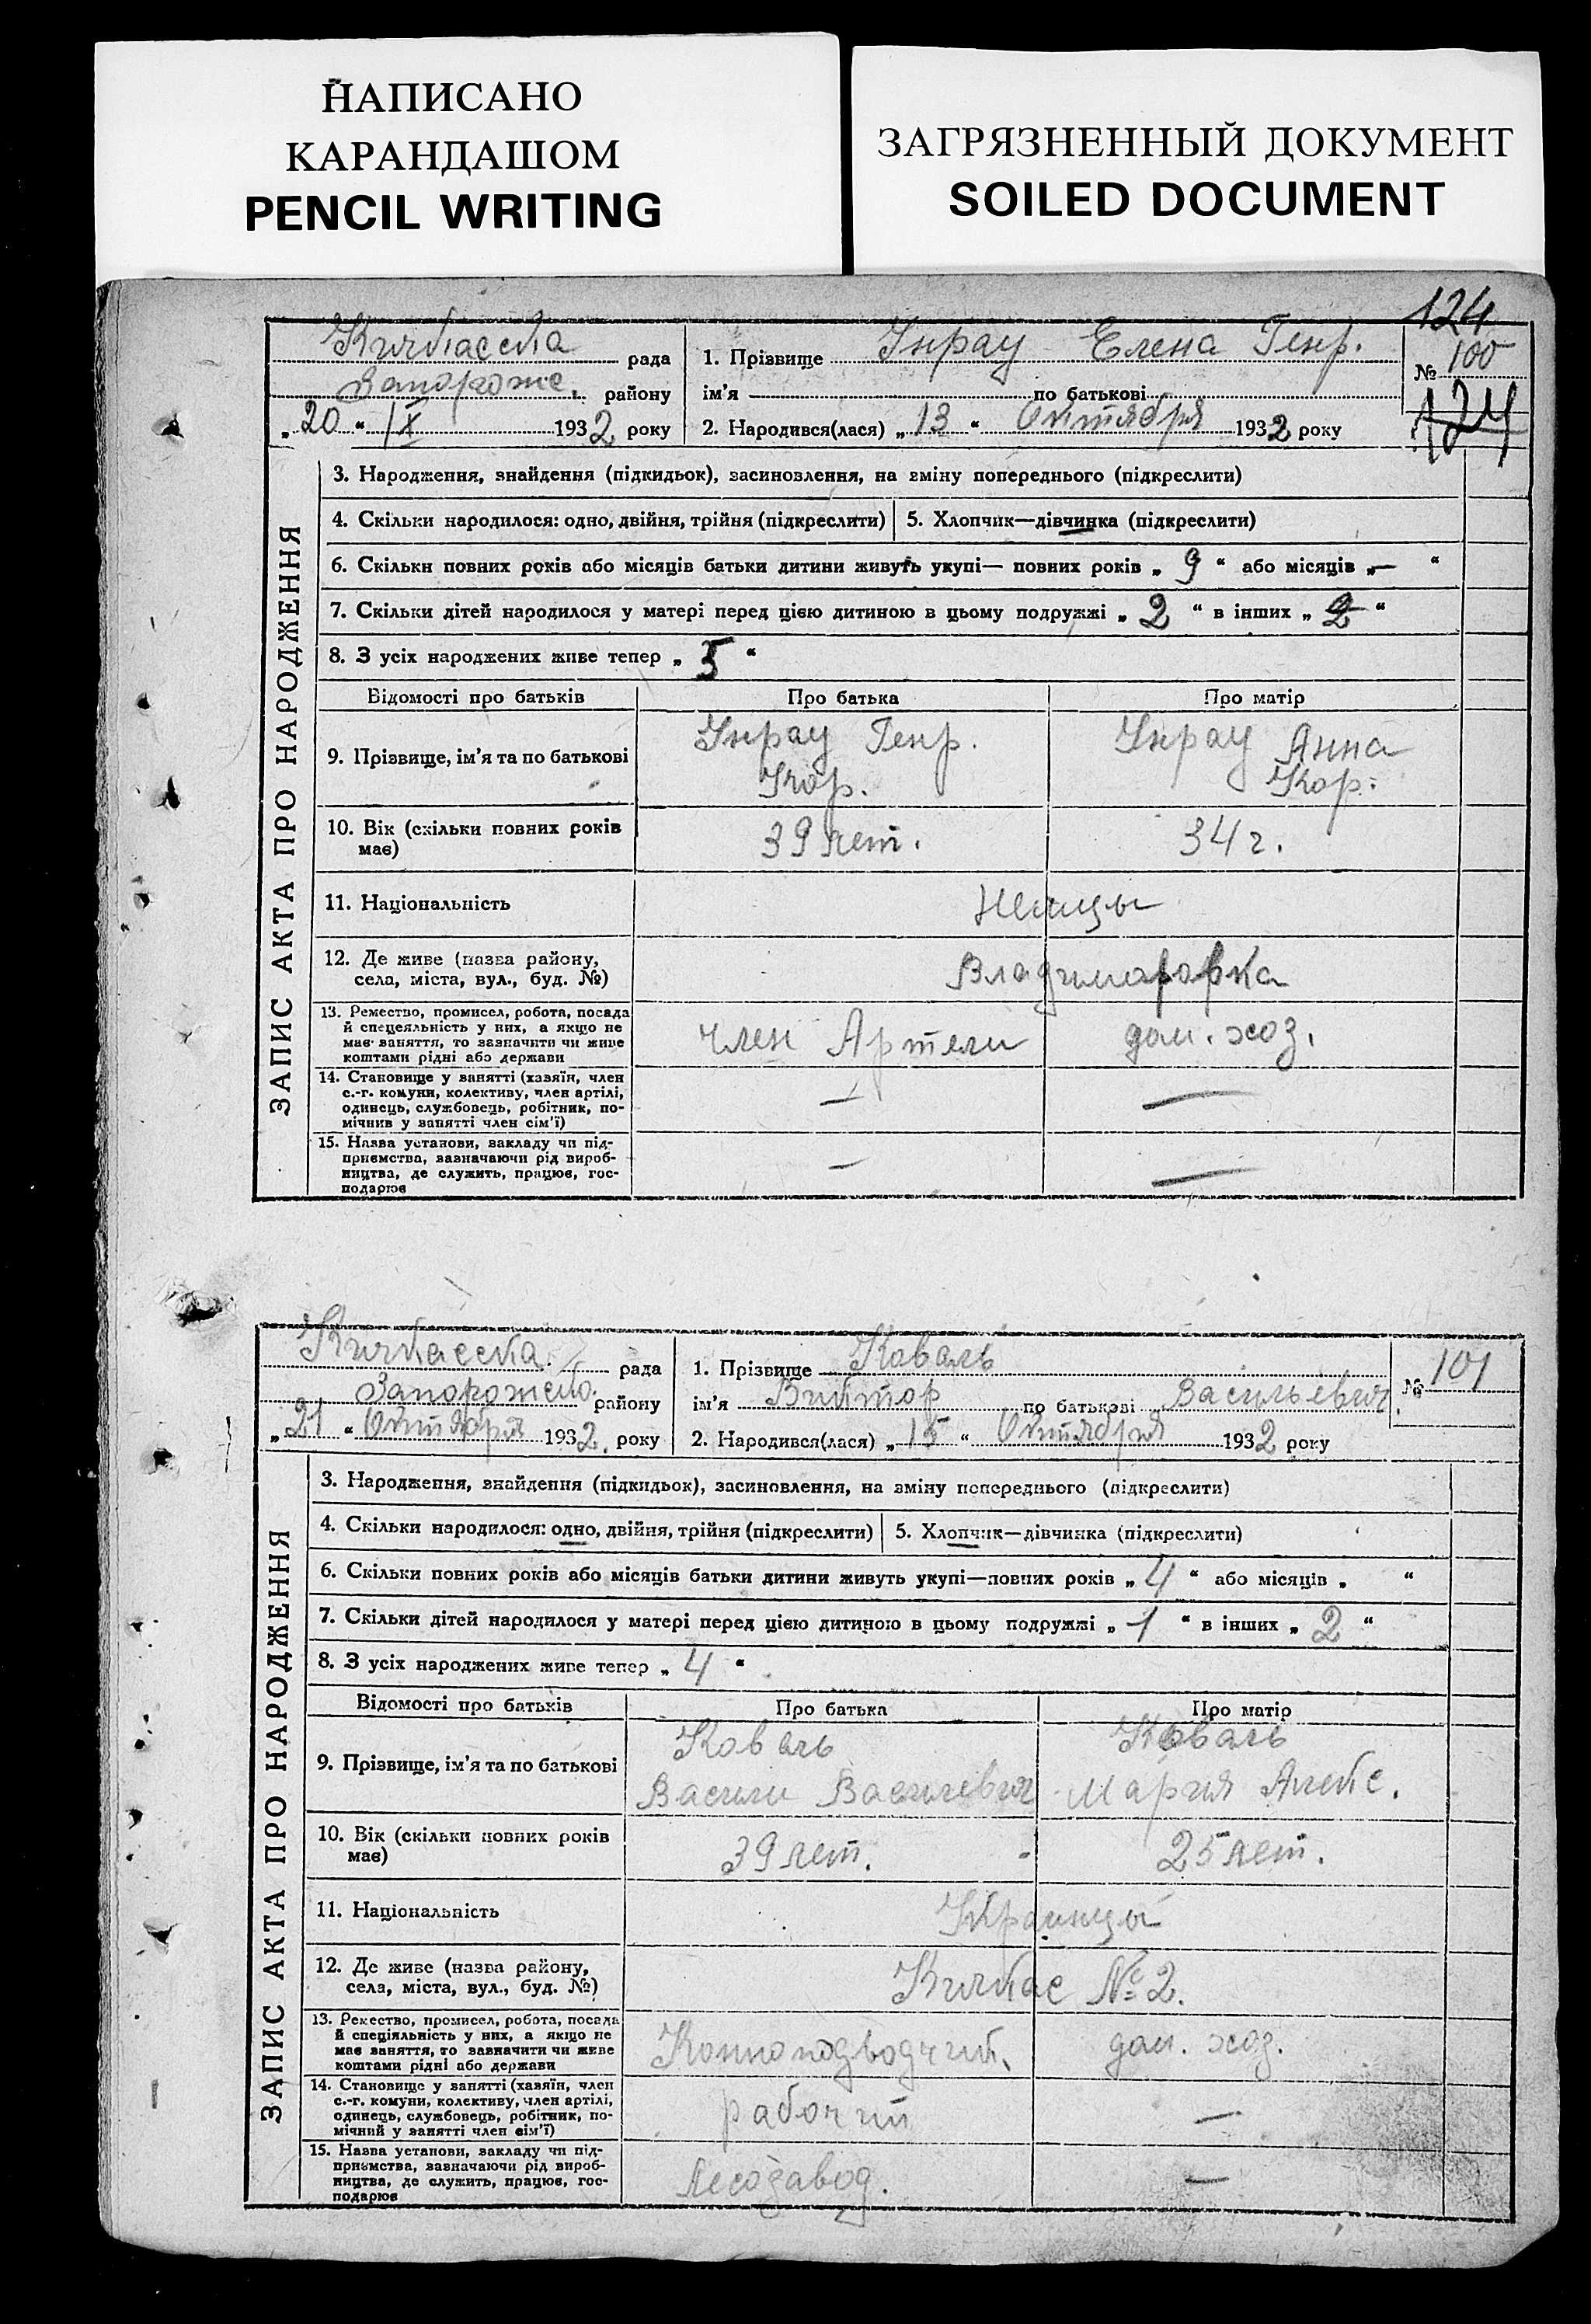 НАПИСАНО
КАРАНДАШОМ
PENCIL WRITING
ЗАГРЯЗНЕННЫЙ ДОКУМЕНТ
SOILED DOCUMENT
124
Кичкасска рада
Запороже. району
„20“ IX 1932 року
1. Прізвище Унрау Елена Генр.
ім'я по батькові
2. Народився(лася) „13“ Октября 1932 року
№ 100
124
ЗАПИС АКТА ПРО НАРОДЖЕННЯ
3. Народження, знайдення (підкидьок), засиновлення, на зміну попереднього (підкреслити)
4. Скільки народилося: одно, двійня, трійня (підкреслити) 5. Хлопчик—дівчинка (підкреслити)
6. Скільки повних років або місяців батьки дитини живуть укупі— повних років „ 9 “ або місяців „—“
7. Скільки дітей народилося у матері перед цією дитиною в цьому подружжі „ 2 “ в інших „ 2 “
8. З усіх народжених живе тепер „ 5 “
Відомості про батьків Про батька Про матір
9. Прізвище, ім'я та по батькові Унрау Генр. Кор. Унрау Анна Кор.
10. Вік (скільки повних років має) 39 лет. 34 г.
11. Національність Немцы
12. Де живе (назва району, села, міста, вул., буд. №) Владимировка
13. Ремество, промисел, робота, посада
й спецеяльність у них, а якщо не
має заняття, то зазначити чи живе
коштами рідні або держави
член Артели дом. хоз.
14. Становище у занятті (хазяїн, член
с.-г. комуни, колективу, член артілі,
одинець, службовець, робітник, по-
мічнив у занятті член сім'ї)
— —
15. Назва установи, закладу чи під-
приємства, зазначаючи рід вироб-
ництва, де служить, працює, гос-
подарює
— —
Кичкасска. рада
Запорожско. району
„21“ Октября 1932. року
1. Прізвище Коваль
ім'я Виктор по батькові Васильевич.
2. Народився(лася) „15“ Октября 1932 року
№ 101
ЗАПИС АКТА ПРО НАРОДЖЕННЯ
3. Народження, знайдення (підкидьок), засиновлення, на зміну попереднього (підкреслити)
4. Скільки народилося: одно, двійня, трійня (підкреслити) 5. Хлопчик—дівчинка (підкреслити)
6. Скільки повних років або місяців батьки дитини живуть укупі—повних років „ 4 “ або місяців „ “
7. Скільки дітей народилося у матері перед цією дитиною в цьому подружжі „ 1 “ в інших „ 2 “
8. З усіх народжених живе тепер „ 4 “
Відомості про батьків Про батька Про матір
9. Прізвище, ім'я та по батькові
Коваль Коваль
Васили Васильевич Мария Алекс.
10. Вік (скільки повних років має) 39 лет. 25 лет.
11. Національність Украинцы
12. Де живе (назва району, села, міста, вул., буд. №) Кичкас № 2.
13. Ремество, промисел, робота, посада
й спеціяльність у них, а якщо не
має заняття, то зазначити чи живе
коштами рідні або держави
Конноподводчик. дом. хоз.
14. Становище у занятті (хазяїн, член
с.-г. комуни, колективу, член артілі,
одинець, службовець, робітник, по-
мічний у занятті член сім'ї)
рабочий —
15. Назва установи, закладу чи під-
приємства, зазначаючи рід вироб-
ництва, де служить, працює, гос-
подарює
Лесозавод. —